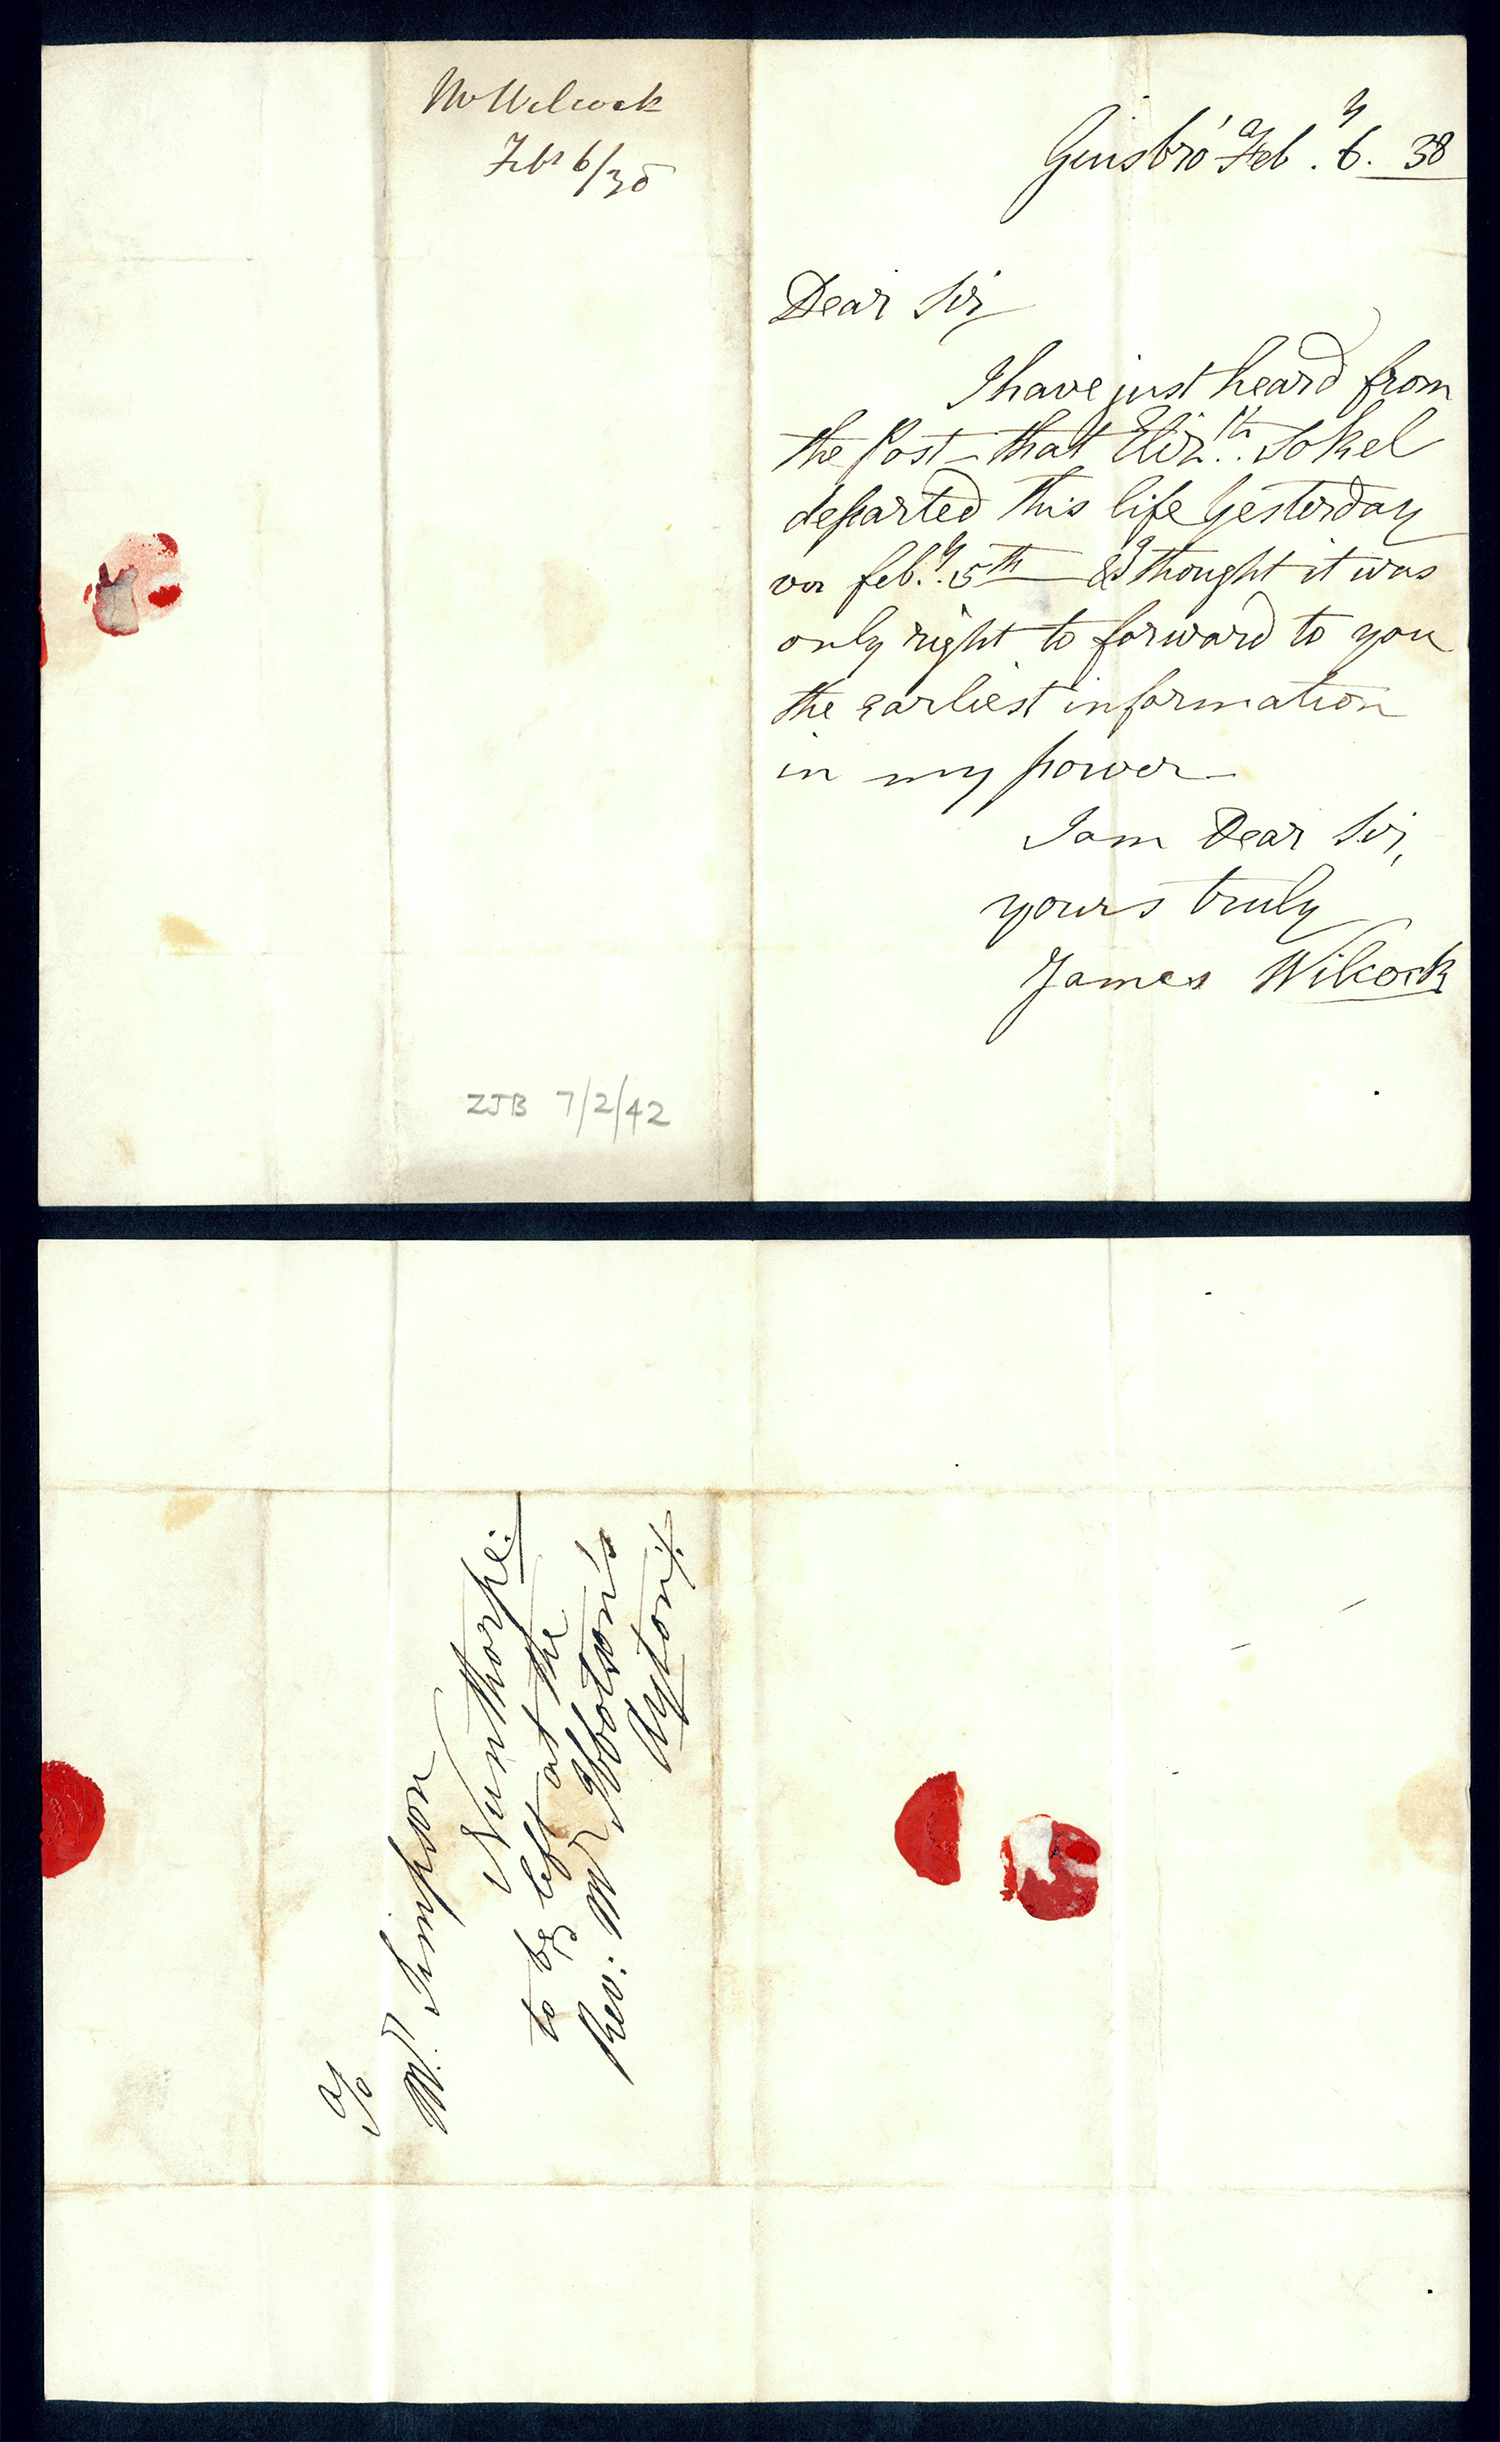 Mr Wilcock
Feb 6/38
Ginsbro' Feb.y 6. 38
Dear Sir
I have just heard from
the Post – that Eliz.th Stokel
departed this life Yesterday
viz feb.y 5th – & I thought it was
only right to forward to you
the earliest information
in my power –
I am Dear Sir,
yours truly
James Wilcock
ZJB 7/2/42
To
Mr. Simpson
Nunthorpe.
to be left at the
Rev: Mr Ibbotson's
Ayton